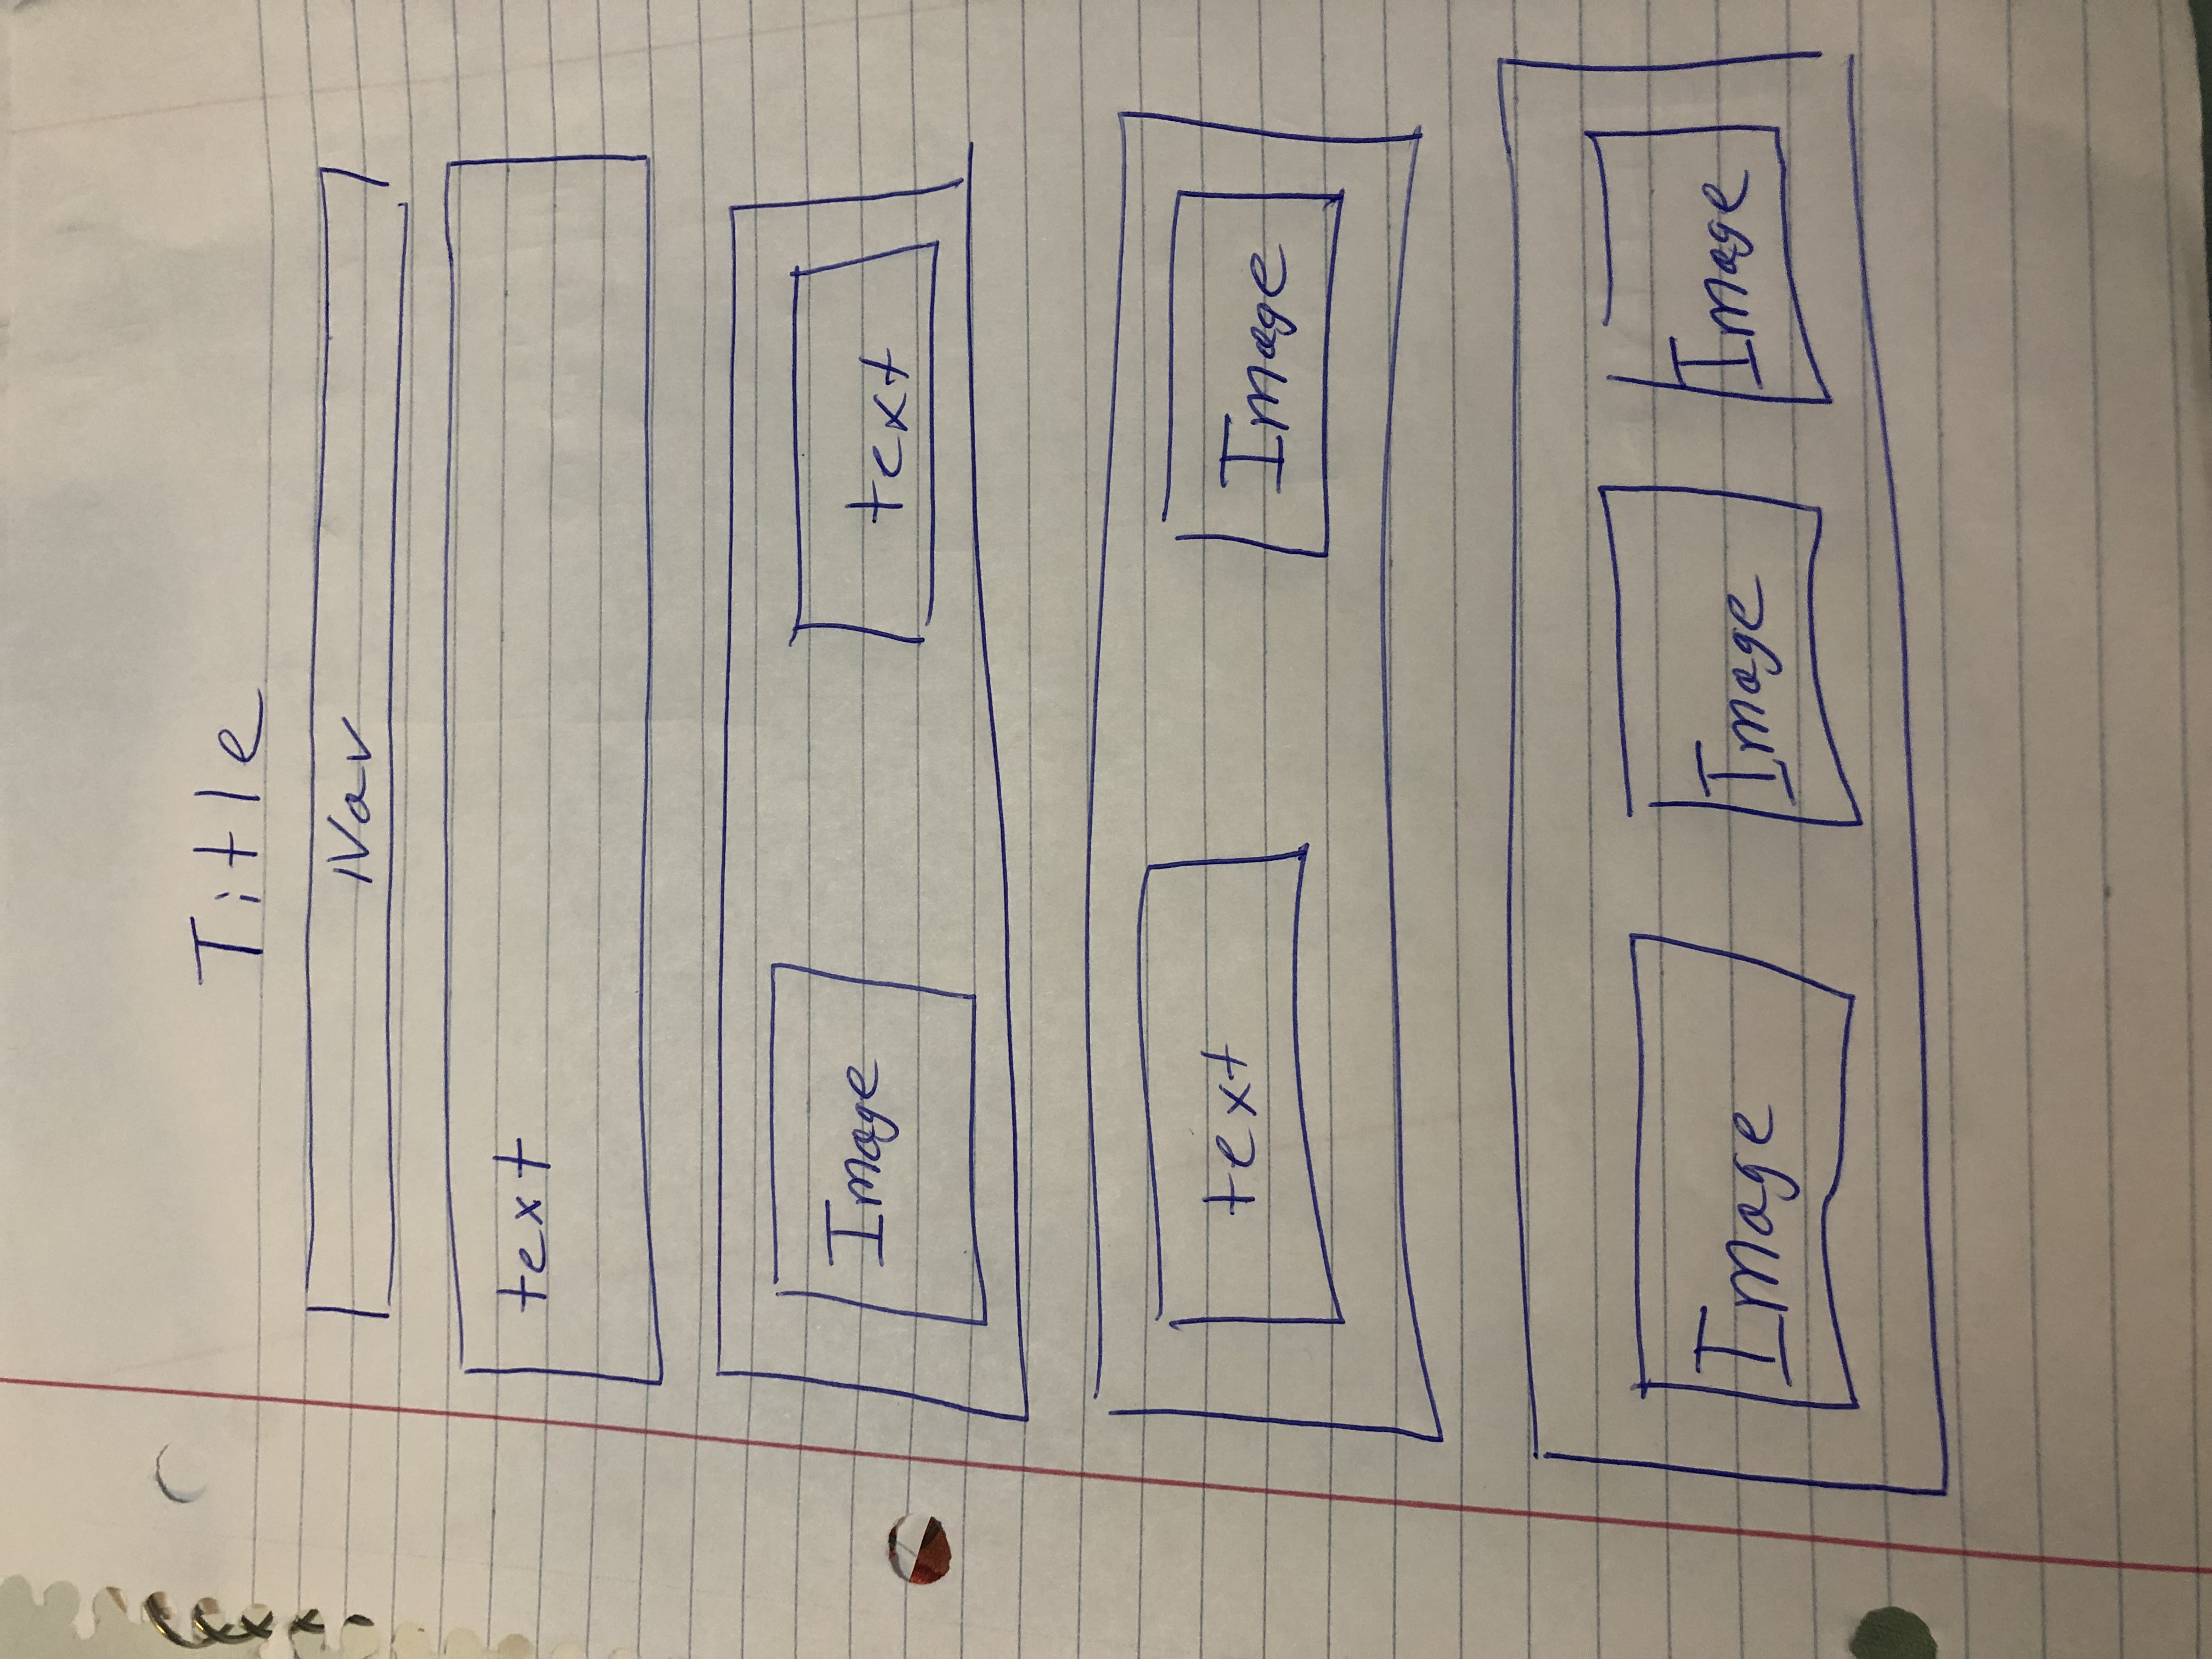 Title
Nav
text
Image text
text Image
Image Image Image